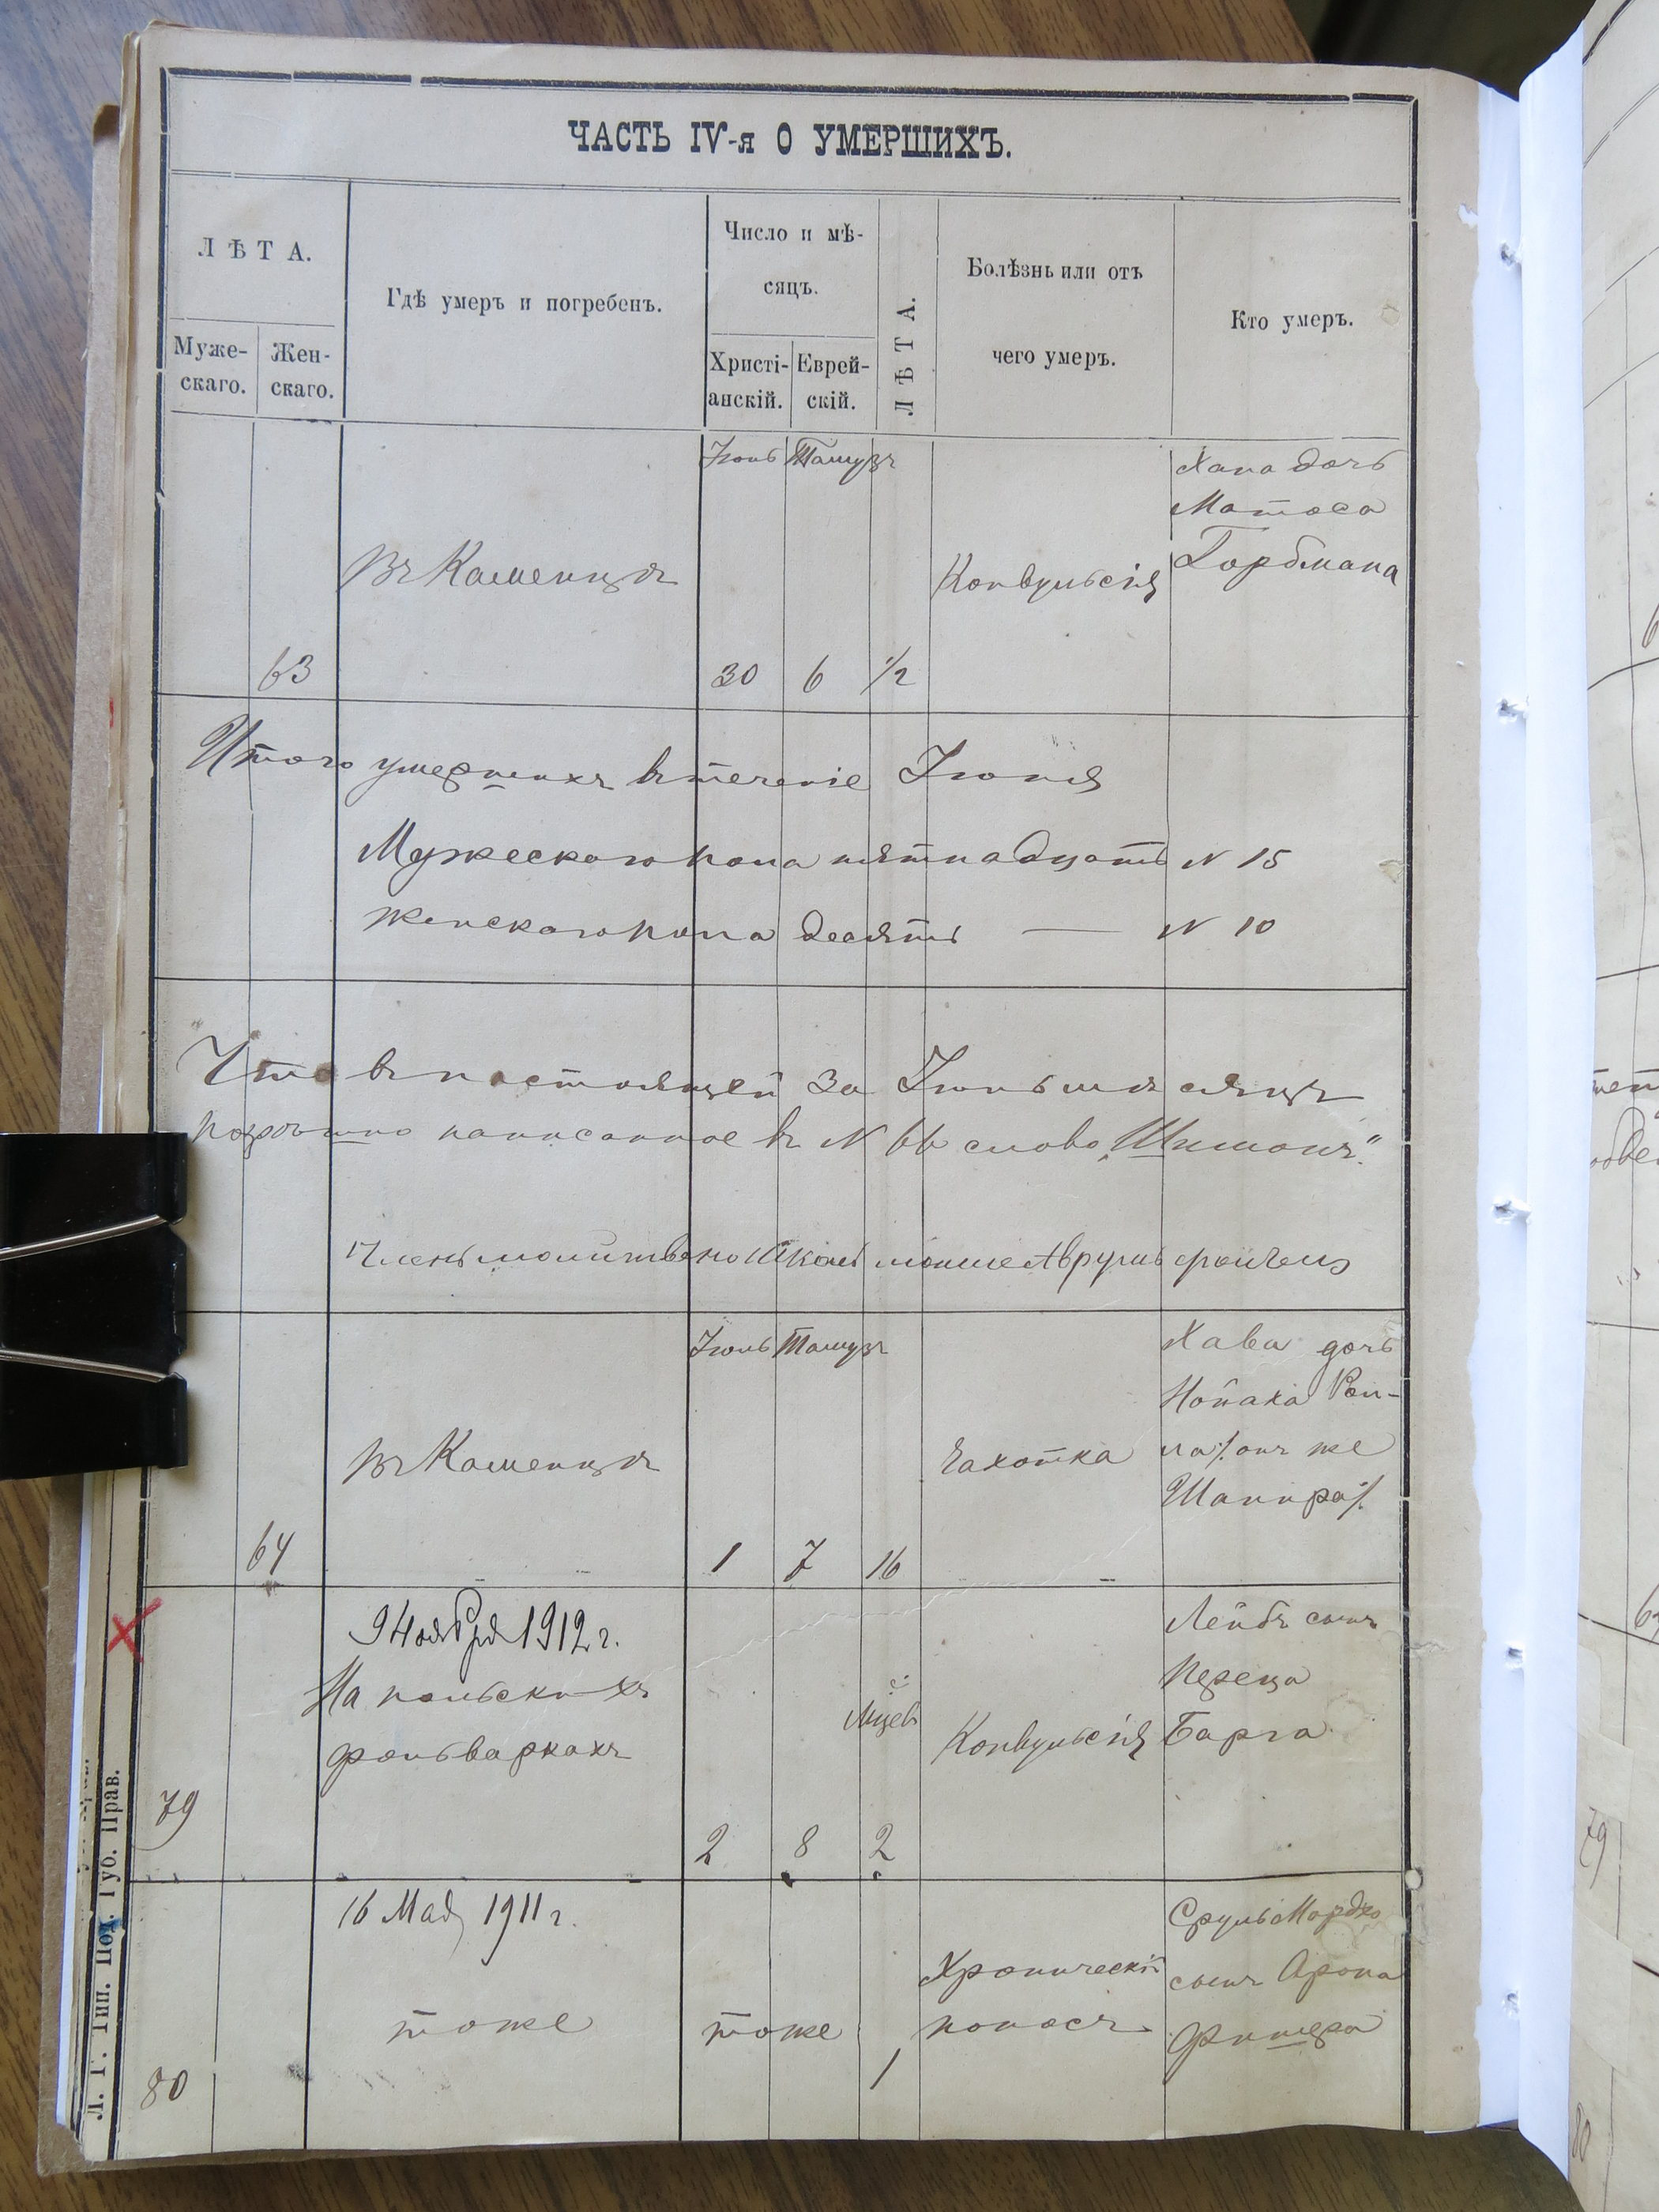 ЧАСТЬ IV-я О УМЕРШИХЪ.
ЛѢТА.
Муже-
скаго.
Жен-
скаго.
Гдѣ умеръ и погребенъ.
Число и мѣ-
сяцъ.
Христі-
анскій.
Еврей-
скій.
ЛѢТА.
Болѣзнь или отъ
чего умеръ.
Кто умеръ.
63
Въ Каменцѣ
Іюнь Тамузъ
30 6 1/2
Конвульсія
Хана дочь
Матоса
Горбмана
Итого умершихъ въ теченіе Іюня
Мужескаго пола пятнадцать N 15
Женскаго пола десять — N 10
Что въ настоящей за Іюнь мѣсяцъ
написанное въ N 66 слово „Шимонъ“.
64
Въ Каменцѣ
Іюль Тамузъ
1 7 16
Чахотка
Хава дочь
Нойаха Рой-
на /. онъ же
Шапира /.
79
9 Ноября 1912 г.
На польскихъ
фольваркахъ
2 8 2
Мѣсяц.
Конвульсія
Лейбъ сынъ
Переца
Барга
80
16 Мая 1911 г.
тоже
тоже
1
Хроническій
поносъ
Сруль Мордко
сынъ Арона
Фишера
Л. Г. Тип. Под. Губ. Прав.